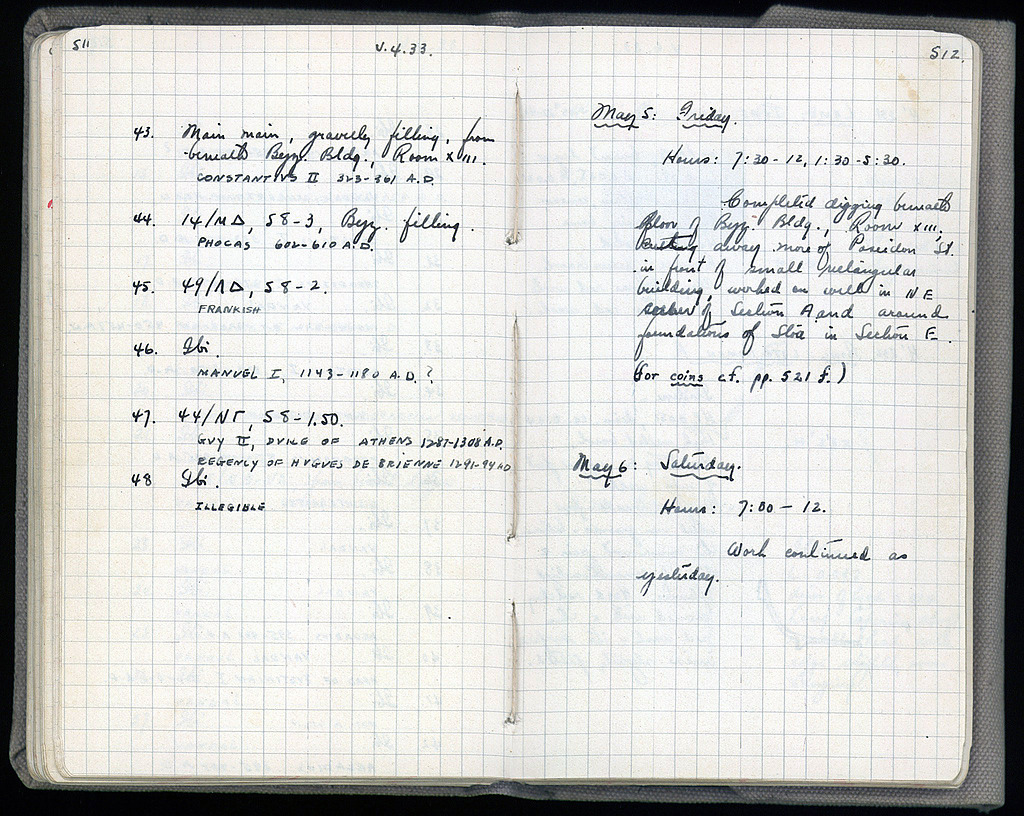 511
V.4.33.
43. Main main, gravelly filling, from
beneath Byz. Bldg., Room XIII.
CONSTANTIVS II 323-361 A.D.
44. 14/ΜΔ, 58-3, Byz. filling.
PHOCAS 602-610 A.D.
45. 49/ΛΔ, 58-2.
FRANKISH
46. Ibi.
MANVEL I, 1143-1180 A.D.?
47. 44/ΝΓ, 58-1.50.
GVY II, DVKE OF ATHENS 1287-1308 A.D.
REGENCY OF HVGVES DE BRIENNE 1291-94 AD
48 Ibi.
ILLEGIBLE
512.
May 5: Friday.
Hours: 7:30-12, 1:30-5:30.
Completed digging beneath
floor of Byz. Bldg., Room XIII,
cutting away more of Poseidon St.
in front of small rectangular
building, worked on well in NE
of Section A and around
foundations of Stoa in Section E.
(For coins cf. pp. 521 f.)
May 6: Saturday.
Hours: 7:00-12.
Work continued as
yesterday.